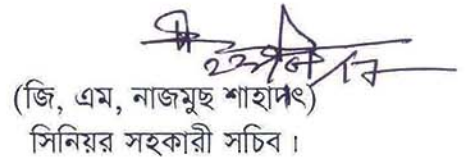 (জি, এম, নাজমুছ শাহাদৎ)
সিনিয়র সহকারী সচিব।